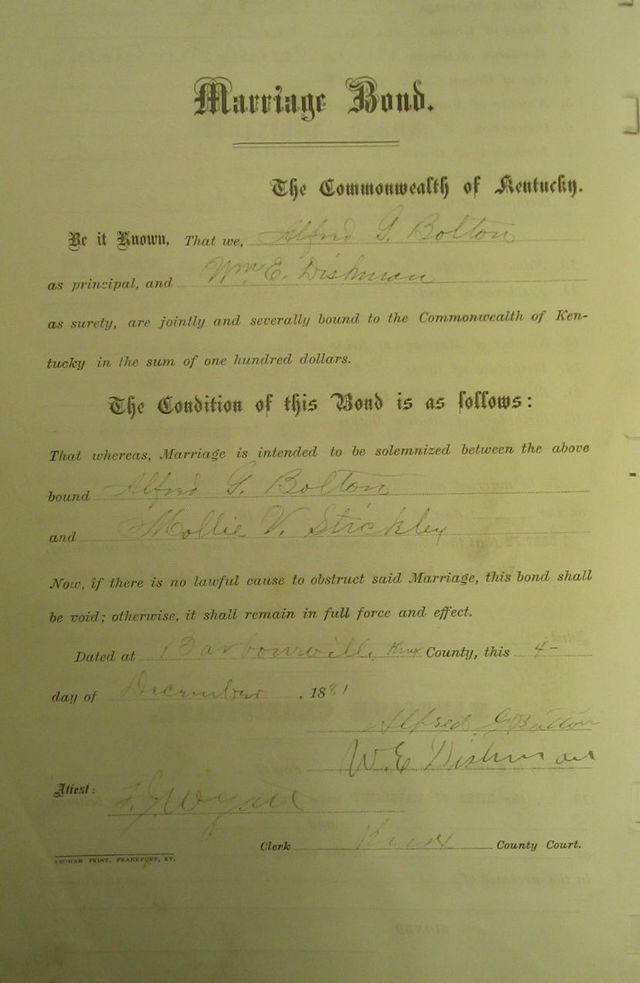 Marriage Bond.
The Commonwealth of Kentucky.
Be it Known, That we, Alfred G. Bolton
as principal, and Wm E. Dishman
as surety, are jointly and severally bound to the Commonwealth of Ken-
tucky in the sum of one hundred dollars.
The Condition of this Bond is as follows:
That whereas, Marriage is intended to be solemnized between the above
bound Alfred G. Bolton
and Mollie V. Stickley
Now, if there is no lawful cause to obstruct said Marriage, this bond shall
be void; otherwise, it shall remain in full force and effect.
Dated at Barbourville, Knox County, this 4-
day of December, 1881
Alfred G Bolton
W. E Dishman
Attest:
Clerk Knox County Court.
YEOMAN PRINT, FRANKFORT, KY.